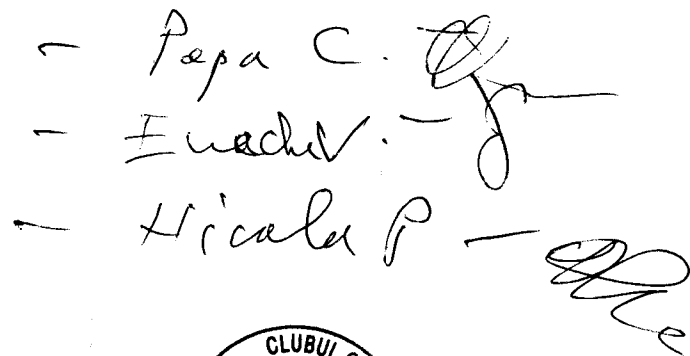 - Popa C.
- Enache V. -
- Nicola P -
CLUBUL